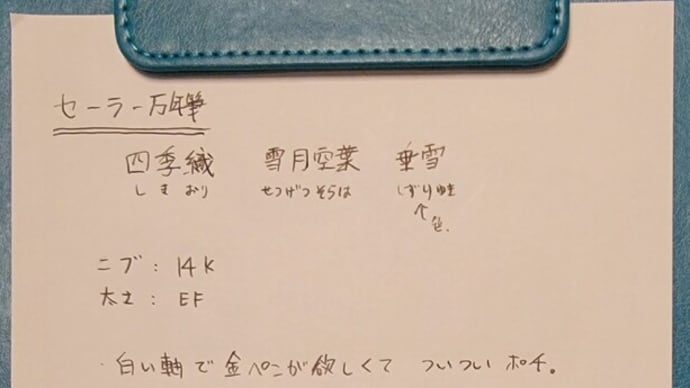 セーラー万年筆
四季織 雪月空葉 垂雪
しきおり せつげつそらは しずりゆき
↑
色.
ニブ : 14K
太さ : EF
・白い軸で金ペンが欲しくて ついつい ポチ。